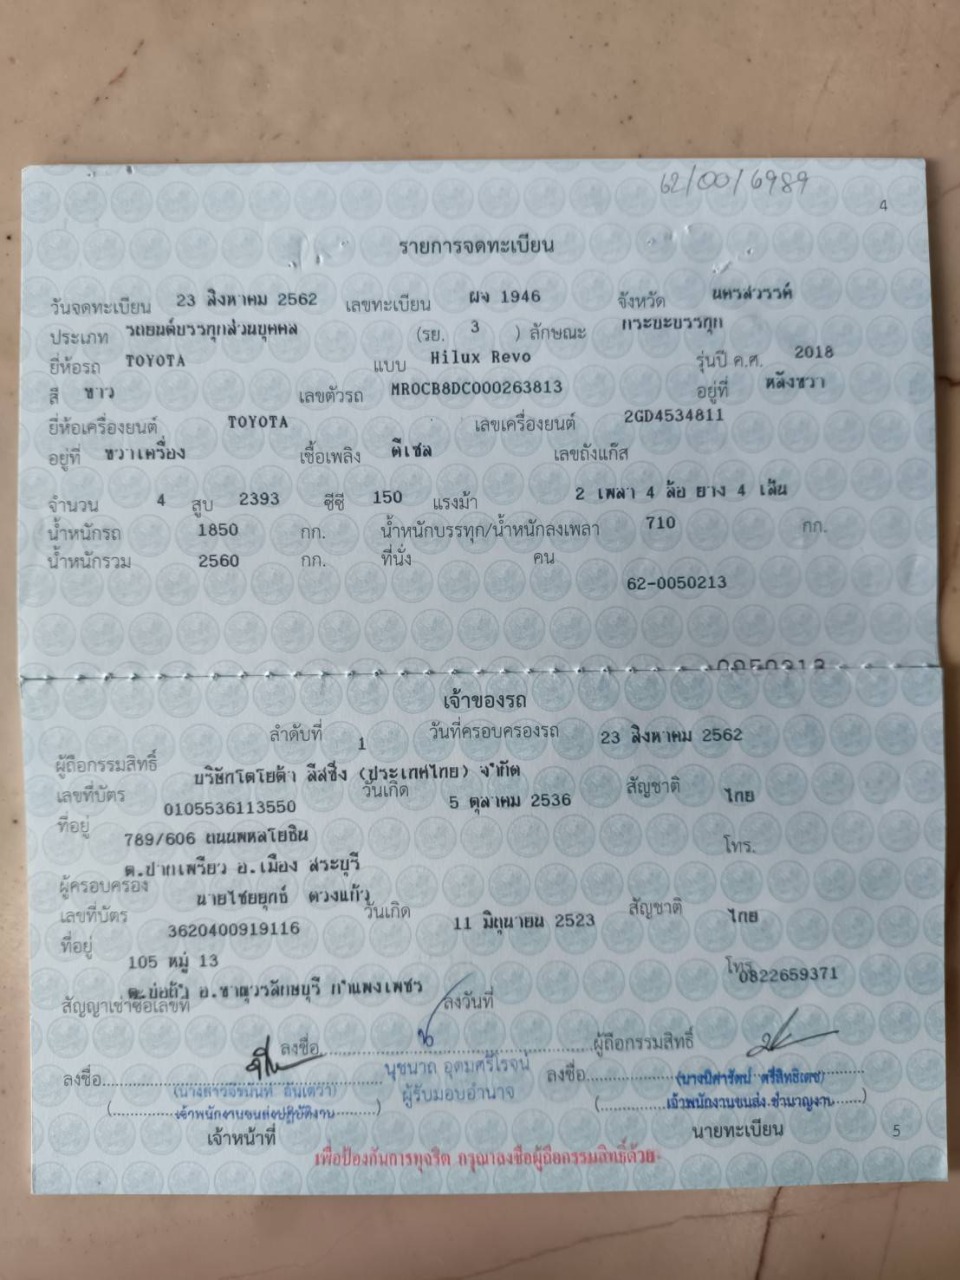 62/00/6989
4
รายการจดทะเบียน
วันจดทะเบียน 23 สิงหาคม 2562 เลขทะเบียน ผง 1946 จังหวัด นครสวรรค์
ประเภท รถยนต์บรรทุกส่วนบุคคล (รย. 3 ) ลักษณะ กระบะบรรทุก
ยี่ห้อรถ TOYOTA แบบ Hilux Revo รุ่นปี ค.ศ. 2018
สี ขาว เลขตัวรถ MR0CB8DC000263813 อยู่ที่ หลังขวา
ยี่ห้อเครื่องยนต์ TOYOTA เลขเครื่องยนต์ 2GD4534811
อยู่ที่ ขวาเครื่อง เชื้อเพลิง ดีเซล เลขถังแก๊ส
จำนวน 4 สูบ 2393 ซีซี 150 แรงม้า 2 เพลา 4 ล้อ ยาง 4 เส้น
น้ำหนักรถ 1850 กก. น้ำหนักบรรทุก/น้ำหนักลงเพลา 710 กก.
น้ำหนักรวม 2560 กก. ที่นั่ง คน
62-0050213
0050213
เจ้าของรถ
ลำดับที่ 1 วันที่ครอบครองรถ 23 สิงหาคม 2562
ผู้ถือกรรมสิทธิ์ บริษัทโตโยต้า ลีสซิ่ง (ประเทศไทย) จำกัด
เลขที่บัตร 0105536113550 วันเกิด 5 ตุลาคม 2536 สัญชาติ ไทย
ที่อยู่ 789/606 ถนนพหลโยธิน โทร.
ต.ปากเพรียว อ.เมือง สระบุรี
ผู้ครอบครอง นายไชยยุทธ์ ดวงแก้ว
เลขที่บัตร 3620400919116 วันเกิด 11 มิถุนายน 2523 สัญชาติ ไทย
ที่อยู่ 105 หมู่ 13 โทร. 0822659371
ต.บ่อถ้ำ อ.ขาณุวรลักษบุรี กำแพงเพชร
สัญญาเช่าซื้อเลขที่ ลงวันที่
ลงชื่อ ผู้ถือกรรมสิทธิ์
นุชนาถ อุดมศรีโรจน์
ผู้รับมอบอำนาจ
ลงชื่อ ลงชื่อ
เจ้าพนักงานขนส่งปฏิบัติงาน เจ้าพนักงานขนส่งชำนาญงาน
เจ้าหน้าที่ นายทะเบียน 5
เพื่อป้องกันการทุจริต กรุณาลงชื่อผู้ถือกรรมสิทธิ์ด้วย